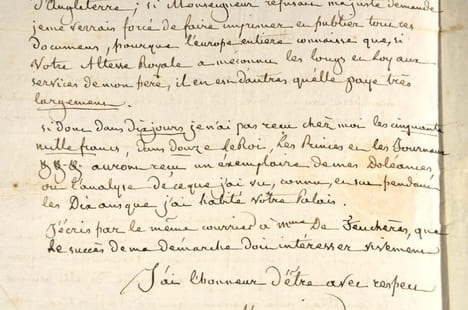 d'Angleterre; si Monseigneur refusait ma juste demande
je me verrais forcé de faire imprimer et publier tous ces
Documens, pour que l'europe entiere connaisse que, si
Votre Altesse Royale a meconnu les longs et loyaux
services de mon père, il en est d'autres qu'elle paye très
largement.
si donc dans dix jours je n'ai pas recu chez moi les cinquante
mille francs, dans douze le Roi, Les Princes et les Journaux
auront recu un exemplaire de mes Doléances,
ou l'analyse de ce que j'ai vu, connu, et su pendant
les Dix ans que j'ai habité votre Palais.
J'écris par le même courrier à Mme De Feuchères, que
le succès de ma demarche doit intéresser vivement
J'ai l'honneur d'être avec respect